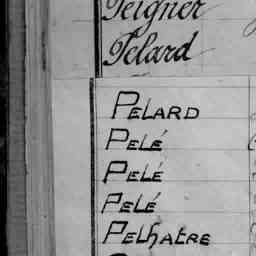 Peigner
Pelard
PELARD
PELÉ
PELÉ
PELÉ
PELhATRE